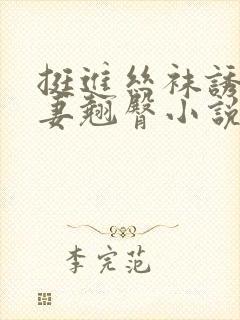 挺進絲袜誘
妻翹臀小說
李完范